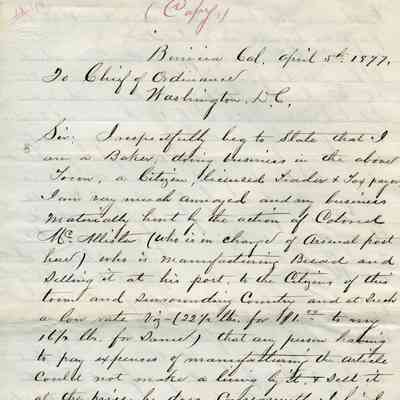 (Copy.)
Benicia Cal, April 5th 1877.
To Chief of Ordnance
Washington, D.C.
Sir: I respectfully beg to State that I
am a Baker, doing business in the above
Town, a Citizen, licensed Trader & Tax payer
I am very much annoyed and my business
materially hurt by the action of Colonel
McAllister (who is in charge of Arsenal post
here) who is manufacturing Bread and
Selling it at his post, to the Citizens of this
town and surrounding Country and at Such
a low rate Viz (22½ lbs. for $1.00 to my
16½ lbs. for Same) that any person having
to pay expenses of manufacturing the article
Could not make a living by it. & Sell it
at the price he does